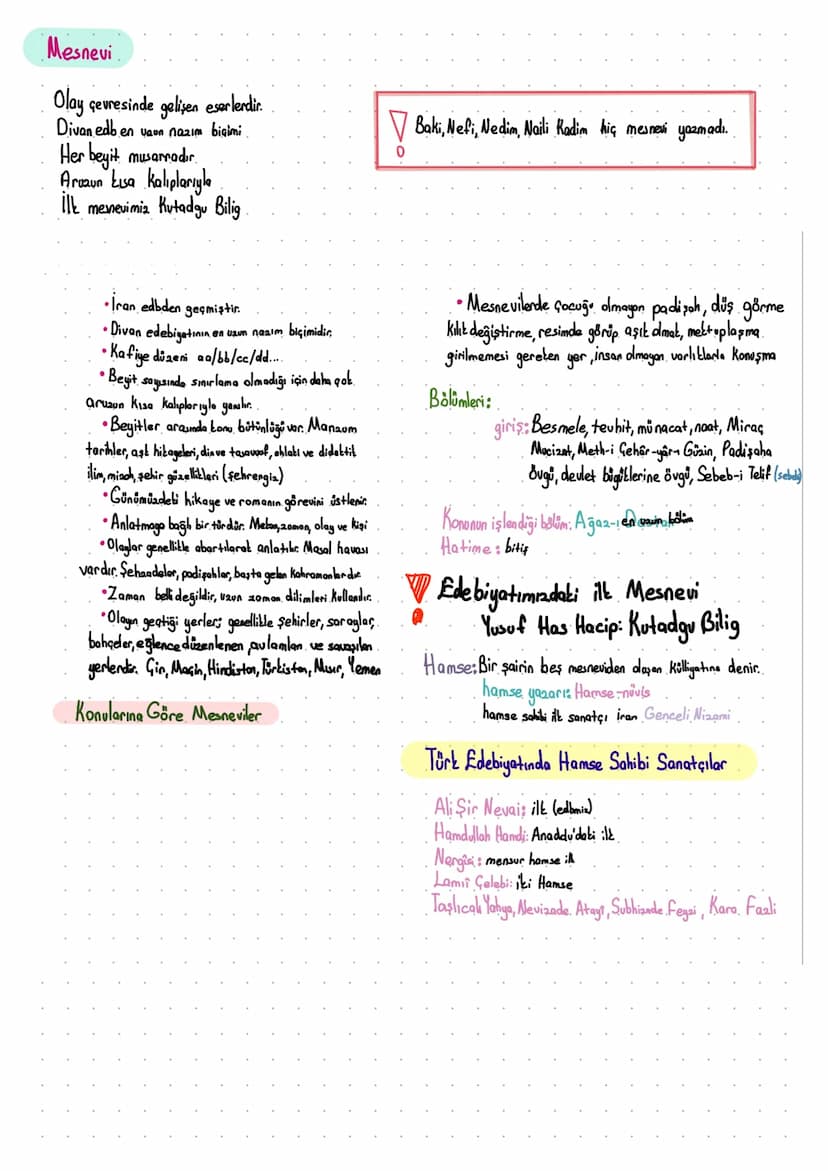 Mesnevi
Olay çevresinde gelişen eserlerdir.
Divan edb en uzun nazım biçimi
Her beyit musarradır
Aruzun kısa kalıplarıyla
İlk mesnevimiz Kutadgu Bilig
Baki, Nefi, Nedim, Naili Kadim hiç mesnevi yazmadı.
• İran edbden geçmiştir.
• Divan edebiyatının en uzun nazım biçimidir.
• Kafiye düzeni aa/bb/cc/dd...
• Beyit sayısında sınırlama olmadığı için daha çok
aruzun kısa kalıplarıyla yazılır.
• Beyitler arasında konu bütünlüğü var. Manzum
tarihler, aşk hikayeleri, din ve tasavvuf, ahlaki ve didaktik
ilim, mizah, şehir güzellikleri (şehrengiz)
• Günümüzdeki hikaye ve romanın görevini üstlenir.
• Anlatmaya bağlı bir türdür. Mekan, zaman, olay ve kişi
• Olaylar genellikle abartılarak anlatılır. Masal havası
vardır. Şehzadeler, padişahlar, başta gelen kahramanlardır
• Zaman belli değildir, uzun zaman dilimleri kullanılır.
• Olayın geçtiği yerler; genellikle şehirler, saraylar,
bahçeler, eğlence düzenlenen, avlanılan ve savaşılan
yerlerdir. Çin, Maçin, Hindistan, Türkistan, Mısır, Yemen
Konularına Göre Mesneviler
• Mesnevilerde çocuğu olmayan padişah, düş görme
kılık değiştirme, resimde görüp aşık olmak, mektuplaşma
girilmemesi gereken yer, insan olmayan varlıklarla konuşma
Bölümleri:
giriş: Besmele, tevhit, münacat, naat, Miraç
Mucizat, Meth-i Çehâr-yâr-ı Güzin, Padişaha
övgü, devlet büyüklerine övgü, Sebeb-i Telif (sebebi)
Konunun işlendiği bölüm: Ağaz-ı en uzun bölüm
Hatime: bitiş
Edebiyatımızdaki ilk Mesnevi
Yusuf Has Hacip: Kutadgu Bilig
Hamse: Bir şairin beş mesneviden oluşan külliyatına denir.
hamse yazarı: Hamse-nüvis
hamse sahibi ilk sanatçı iran Genceli Nizami
Türk Edebiyatında Hamse Sahibi Sanatçılar
Ali Şir Nevai: ilk (edbmiz)
Hamdullah Hamdi: Anadolu'daki ilk
Nergisi: mensur hamse ilk
Lamiî Çelebi: iki Hamse
Taşlıcalı Yahya, Nevizade Atayî, Subhizade Feyzi, Kara Fazlı